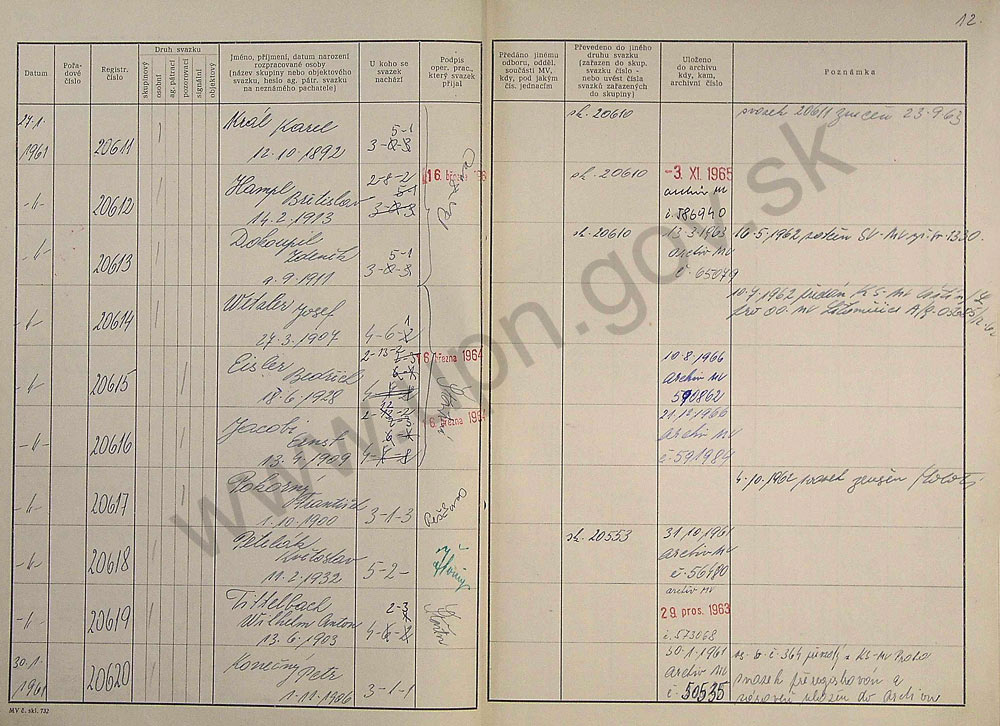 12.
Datum
Pořa-
dové
číslo
Registr.
číslo
Druh svazku
skupinový
osobní
ag. pátrací
pozorovací
signální
objektový
Jméno, příjmení, datum narození
rozpracované osoby
(název skupiny nebo objektového
svazku, heslo ag. pátr. svazku
na neznámého pachatele)
U koho se
svazek
nachází
Podpis
oper. prac.,
který svazek
přijal
Předáno jinému
odboru, odděl.
součásti MV,
kdy, pod jakým
čís. jednacím
Převedeno do jiného
druhu svazku
(zařazen do skup.
svazku číslo -
nebo uvést čísla
svazků zařazených
do skupiny)
Uloženo
do archivu
kdy, kam,
archivní číslo
Poznámka
24.1.
1961
20611
Král Karel
12.10.1892
5-1
3-8-3
sk. 20610
svazek 20611 zničen 23.9.63
-"-
20612
Hampl
Břetislav
14.2.1913
2-8-2
3-8-3
16. března
sk. 20610
-3. XI. 1965
archiv MV
č. 586940
-"-
20613
Dokoupil
Zdeněk
9.1911
5-1
3-8-3
sk. 20610
13.3.1963
archiv MV
č. 65079
16.5.1962
-"-
20614
Witzler Josef
27.3.1907
1
4-6-8
10.7.1962 předán KS-MV
pro OO-MV Litoměřice
-"-
20615
Eisler
Bedřich
18.6.1928
2-13-2
6 března 1964
10.8.1966
archiv MV
590862
-"-
20616
Jacobi
Ernst
13.4.1909
6 března
21.12.1966
archiv MV
č. 591984
-"-
20617
Pokorný
František
1.10.1900
3-1-3
4.10.1962 svazek
-"-
20618
Květoslav
11.2.1932
5-2-
sk. 20553
31.10.1961
archiv MV
č. 56480
-"-
20619
Tittelbach
Wilhelm Anton
13.6.1903
2-3
4-6-8
archiv MV
29 pros. 1963
č. 573068
30.1.
1961
20620
Konečný
Petr
1.11.1906
3-1-1
30.1.1961
archiv MV
č. 50535
KS-MV Praha
svazek přeregistrován a
uložen do archivu
MV č. skl. 732
www.upn.gov.sk